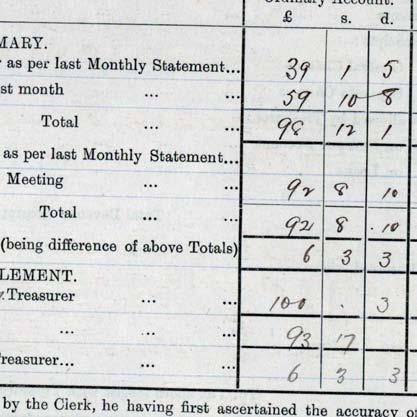 Ordinary Account.
£ s. d.
MARY.
as per last Monthly Statement... 39 1 5
st month ... ... 59 10 8
Total ... ... 98 12 1
as per last Monthly Statement...
Meeting ... ... 92 8 10
Total ... ... 92 8 .10
(being difference of above Totals) 6 3 3
LEMENT.
Treasurer ... ... 100 . 3
... ... 93 17
Treasurer... ... 6 3 3
by the Clerk, he having first ascertained the accuracy o